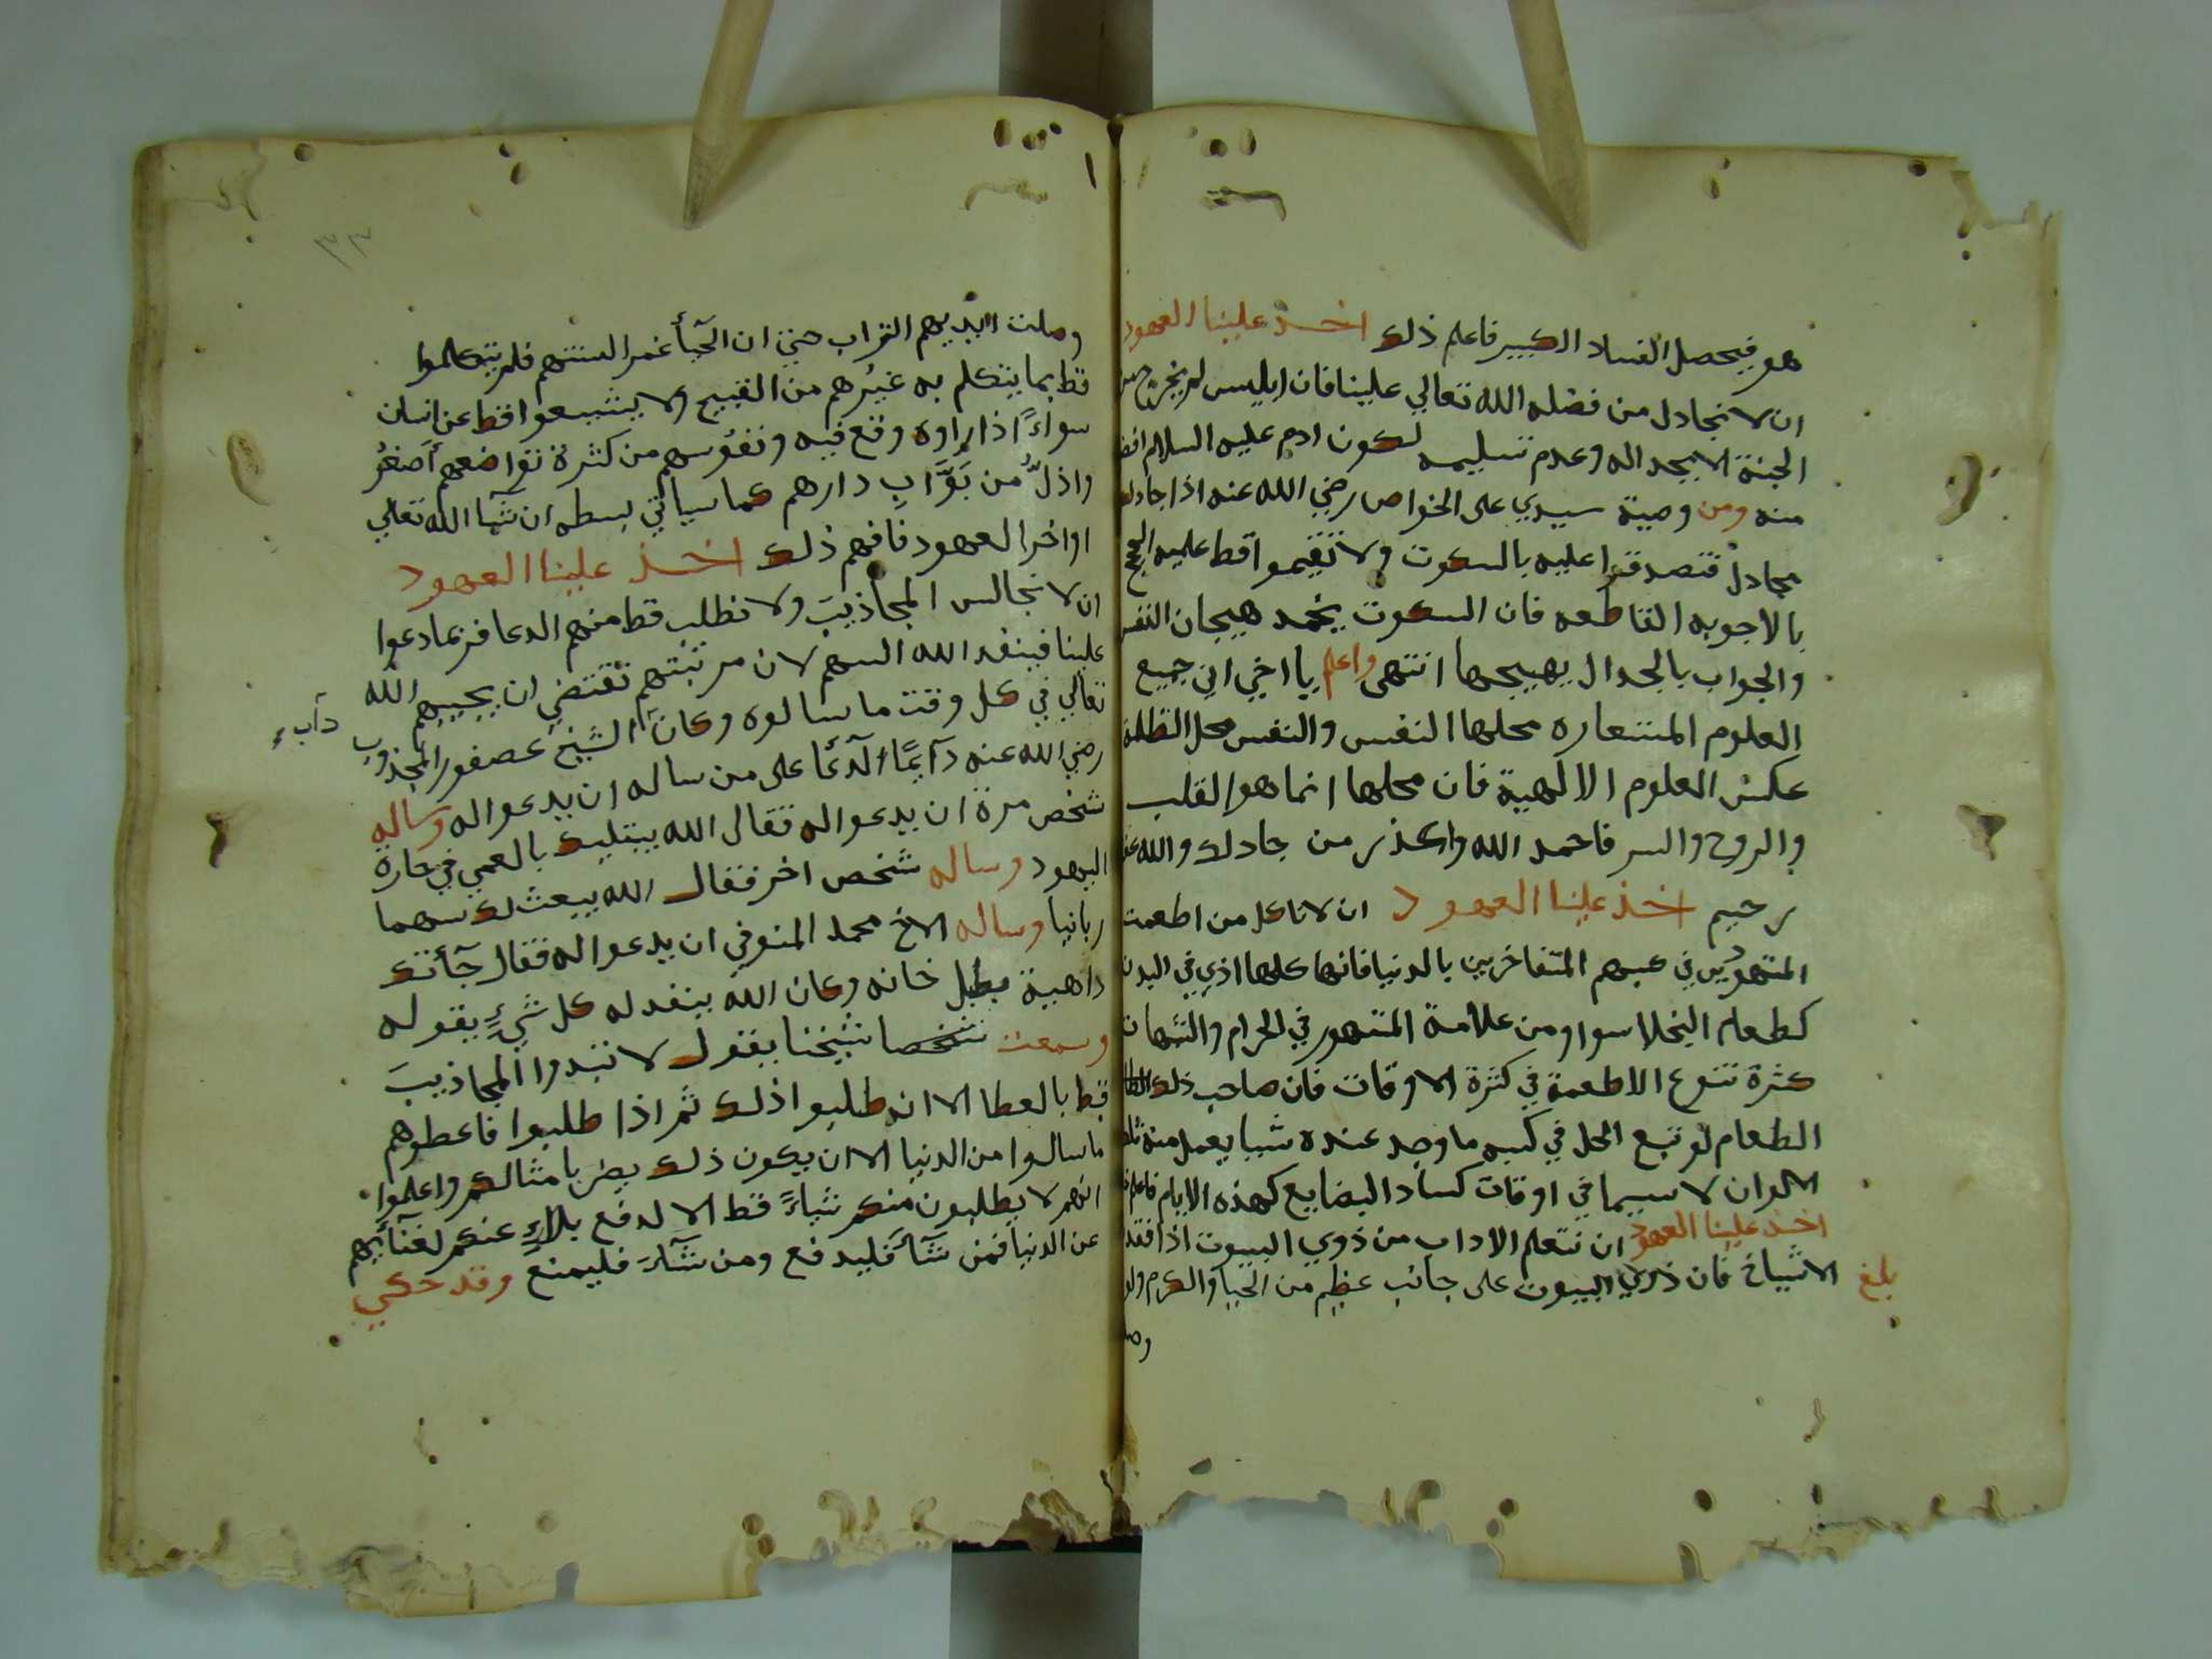 هو فيحصل الفساد الكبير فاعلم ذلك اخذ علينا العهود
ان لا نجادل من فضله الله تعالي علينا فان ابليس لم يخرج من
الجنة الا بجداله وعدم تسليمه لكون ادم عليه السلام افضل
منه ومن وصية سيدي على الخواص رضي الله عنه اذا جادلكم
مجادل فتصدقوا عليه بالسكوت ولا تقيموا قط عليه الحجج
بالاجوبه القاطعه فان السكوت يخمد هيجان النفس
والجواب بالجدال يهيجها انتهى واعلم يا اخي ان جميع
العلوم المستعاره محلها النفس والنفس محل الظلمة
عكس العلوم الالهية فان محلها انما هو القلب
والروح والسر فاحمد الله واعذر من جادلك والله غفور
رحيم اخذ علينا العهود ان لا ناكل من اطعمة
المتهورين في كسبهم المتفاخرين بالدنيا فانها كلها اذي في البدن
كطعام البخلا سوا ومن علامة المتهور في الحرام والشبهات
كثرة تنوع الاطعمة في كثرة الاوقات فان صاحب ذلك
الطعام لو تبع الحل في كسبه ما وجد عنده شيا يعمل منه تلك
الالوان لا سيما في اوقات كساد البضايع كهذه الايام فاعلم
اخذ علينا العهود ان نتعلم الاداب من ذوي البيوت اذا فقد
الاشياخ فان ذوي البيوت على جانب عظيم من الحيا والكرم ولو
بلغ
وصلت
٣٣
وصلت ايديهم التراب حتي ان الحيآ غمر السنتهم فلم يتكلموا
قط بما يتكلم به غيرُهم من القبيح ولا يشيعوا قط عن انسان
سواءً اذا راوه وقع فيه ونفوسهم من كثرة تواضعهم أصغرُ
واذلُّ من بَوَّابِ دارهم كما سياتي بسطه ان شآ الله تعالي
اواخر العهود فافهم ذلك اخذ علينا العهود
ان لا نجالس المجاذيبَ ولا نطلب قط منهم الدعا فربما دعوا
علينا فينفد الله السهم لان مرتبتهم تقتضي ان يجيبهم الله
تعالي في كل وقت ما سالوه وكان الشيخ عصفور المجذوب
رضي الله عنه دآيمًا الدعا على من ساله ان يدعوا له وساله
دآبه
شخص مرة ان يدعوا له فقال الله يبتليك بالعمي في حارة
اليهود وساله شخص اخر فقال الله يبعث لك سهما
ربانيا وساله الاخ محمد المنوفي ان يدعوا له فقال جآتك
داهية بطبل خانه وكان الله ينفد له كل شيءٍ يقوله
وسمعت شخصا شيخنا يقول لا تبدوا المجاذيبَ
قط بالعطا الا ان طلبوا ذلك ثم اذا طلبوا فاعطوهم
ما سالوا من الدنيا الا ان يكون ذلك يضر بامثالكم واعلموا
انهم لا يطلبون منكم شياءً قط الا لدفع بلاءٍ عنكم لغنآئهم
عن الدنيا فمن شآ فليدفع ومن شآء فليمنع وقد حكي